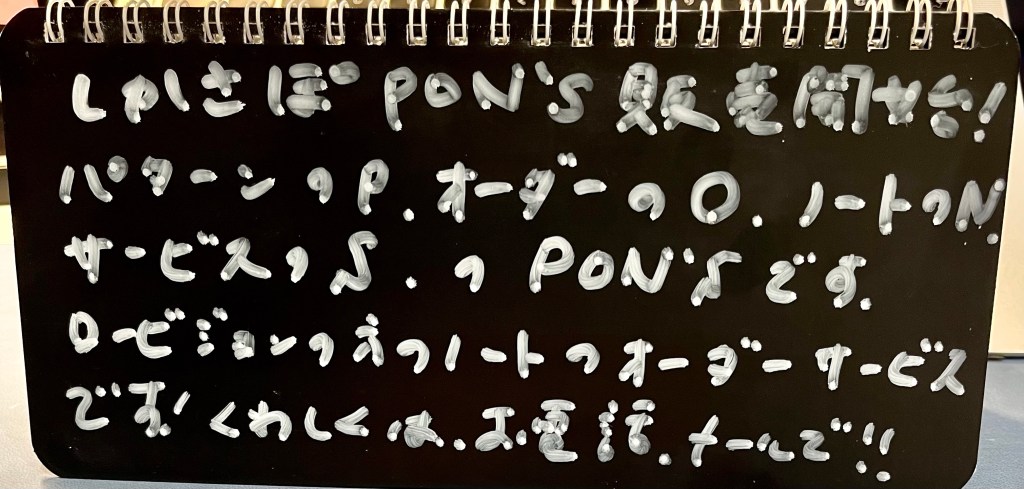 PON'S 販売開始!
パターンのP.オーダーのO.ノートのN.
サービスのS.のPON'Sです.
ロービジョンの ノートのオーダーサービス
です!くわしくは.お電話.メールで!!